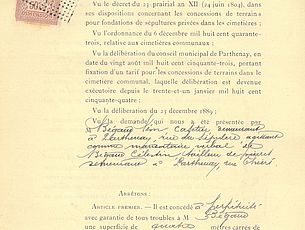 Vu le décret du 23 prairial an XII (24 juin 1804), dans
ses dispositions concernant les concessions de terrains
pour fondations de sépultures privées dans les cimetières ;
Vu l'ordonnance du 6 décembre mil huit cent quarante-
trois, relative aux cimetières communaux ;
Vu la délibération du conseil municipal de Parthenay, en
date du vingt août mil huit cent cinquante-trois, portant
fixation d'un tarif pour les concessions de terrains dans le
cimetière communal, laquelle délibération est devenue
exécutoire depuis le trente-et-un janvier mil huit cent
cinquante-quatre ;
Vu la délibération du 23 décembre 1889 ;
Vu la demande qui nous a été présentée par
Bégaud cafetier demeurant
à Parthenay, rue du agissant
comme mandataire verbal de
Bégaud Célestin tailleur de pierres
demeurant à Parthenay, rue
ARRÊTONS :
ARTICLE PREMIER. — Il est concédé à perpétuité
avec garantie de tous troubles à M Bégaud
une superficie de quatre mètres carrés de